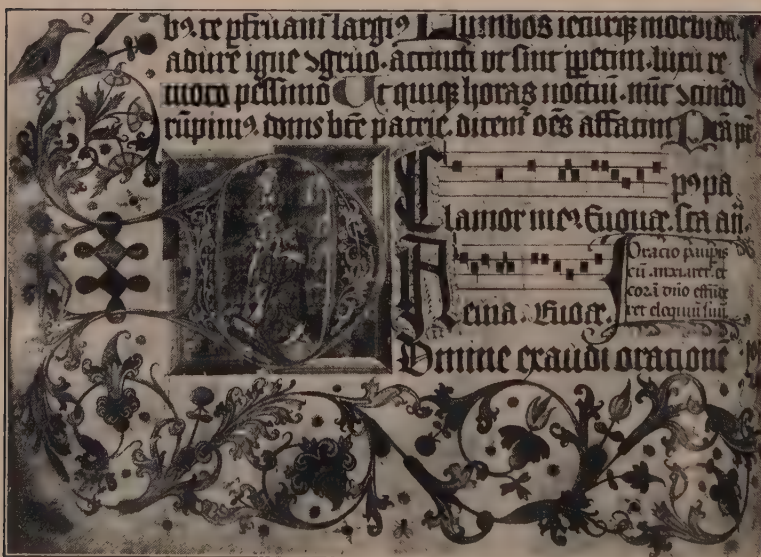 bꝯ. te pfruam̄ largiꝯ Lumbos iecurqꝫ morbidū
adure igne ꝯgruo. accincti vt sint ꝑpetim. luxu re
moto pessimo Vt quiqꝫ horas noctiū. nūc ꝯcinēdo
rūpimꝯ. donis bte patrie. ditem̄ oēs affatim
Clamor meꝯ. Euouae. sca añ.
Oracio paupis
cū anxiaret. et
corā dño effūd
ret eloquiū suū
Domine exaudi oratione